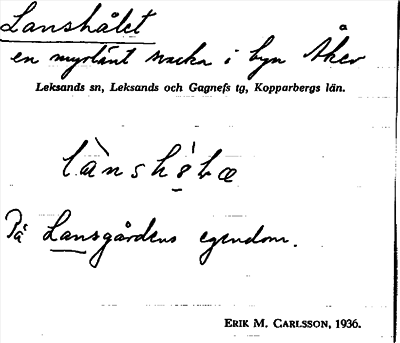 Lanshålet
en myrlänt svacka i byn Åkev
Leksands sn, Leksands och Gagnefs tg, Kopparbergs län.
På Lansgårdens egendom.
ERIK M. CARLSSON, 1936.